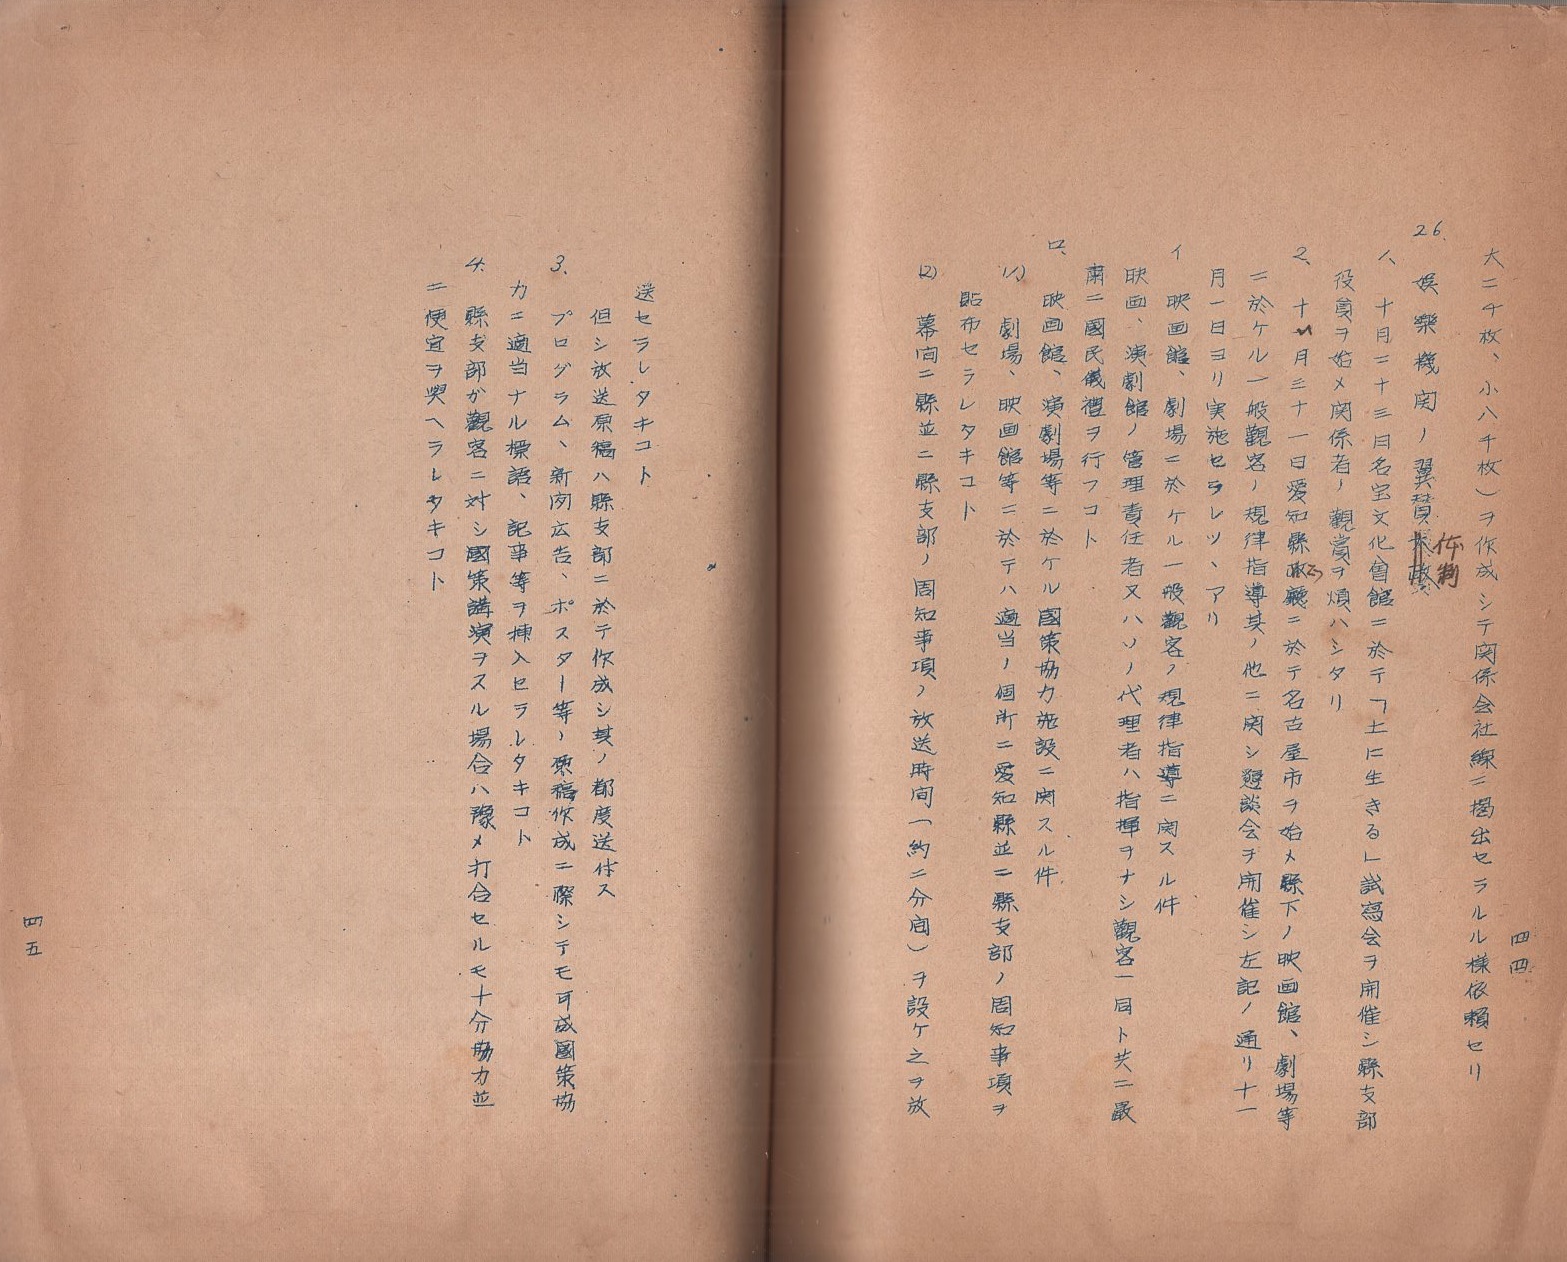 大二千枚、小八千枚)ヲ作成シテ関係会社線ニ掲出セラルル様依頼セリ
26. 娯樂機関ノ翼賛体制
1、十月二十三日名宝文化會館ニ於テ「土に生きる」試寫会ヲ開催シ縣支部
役員ヲ始メ関係者ノ觀賞ヲ煩ハシタリ
2、十月三十一日愛知縣廳ニ於テ名古屋市ヲ始メ縣下ノ映画館、劇場等
ニ於ケル一般觀客ノ規律指導其ノ他ニ関シ懇談会ヲ開催シ左記ノ通リ十一
月一日ヨリ実施セラレツヽアリ
イ 映画館、劇場ニ於ケル一般觀客ノ規律指導ニ関スル件
映画、演劇館ノ管理責任者又ハソノ代理者ハ指揮ヲナシ觀客一同ト共ニ嚴
粛ニ國民儀禮ヲ行フコト
ロ、映画館、演劇場等ニ於ケル國策協力施設ニ関スル件
(1) 劇場、映画館等ニ於テハ適当ノ個所ニ愛知縣並ニ縣支部ノ周知事項ヲ
貼布セラレタキコト
(2) 幕間ニ縣並ニ縣支部ノ周知事項ノ放送時間(約二分間)ヲ設ケ之ヲ放
四四
送セラレタキコト
但シ放送原稿ハ縣支部ニ於テ作成シ其ノ都度送付ス
3、プログラム、新聞広告、ポスター等ノ原稿作成ニ際シテモ可成國策協
力ニ適当ナル標語、記事等ヲ挿入セラレタキコト
4. 縣支部が觀客ニ対シ國策講演ヲスル場合ハ豫メ打合セルモ十分協力並
ニ便宜ヲ與ヘラレタキコト
四五